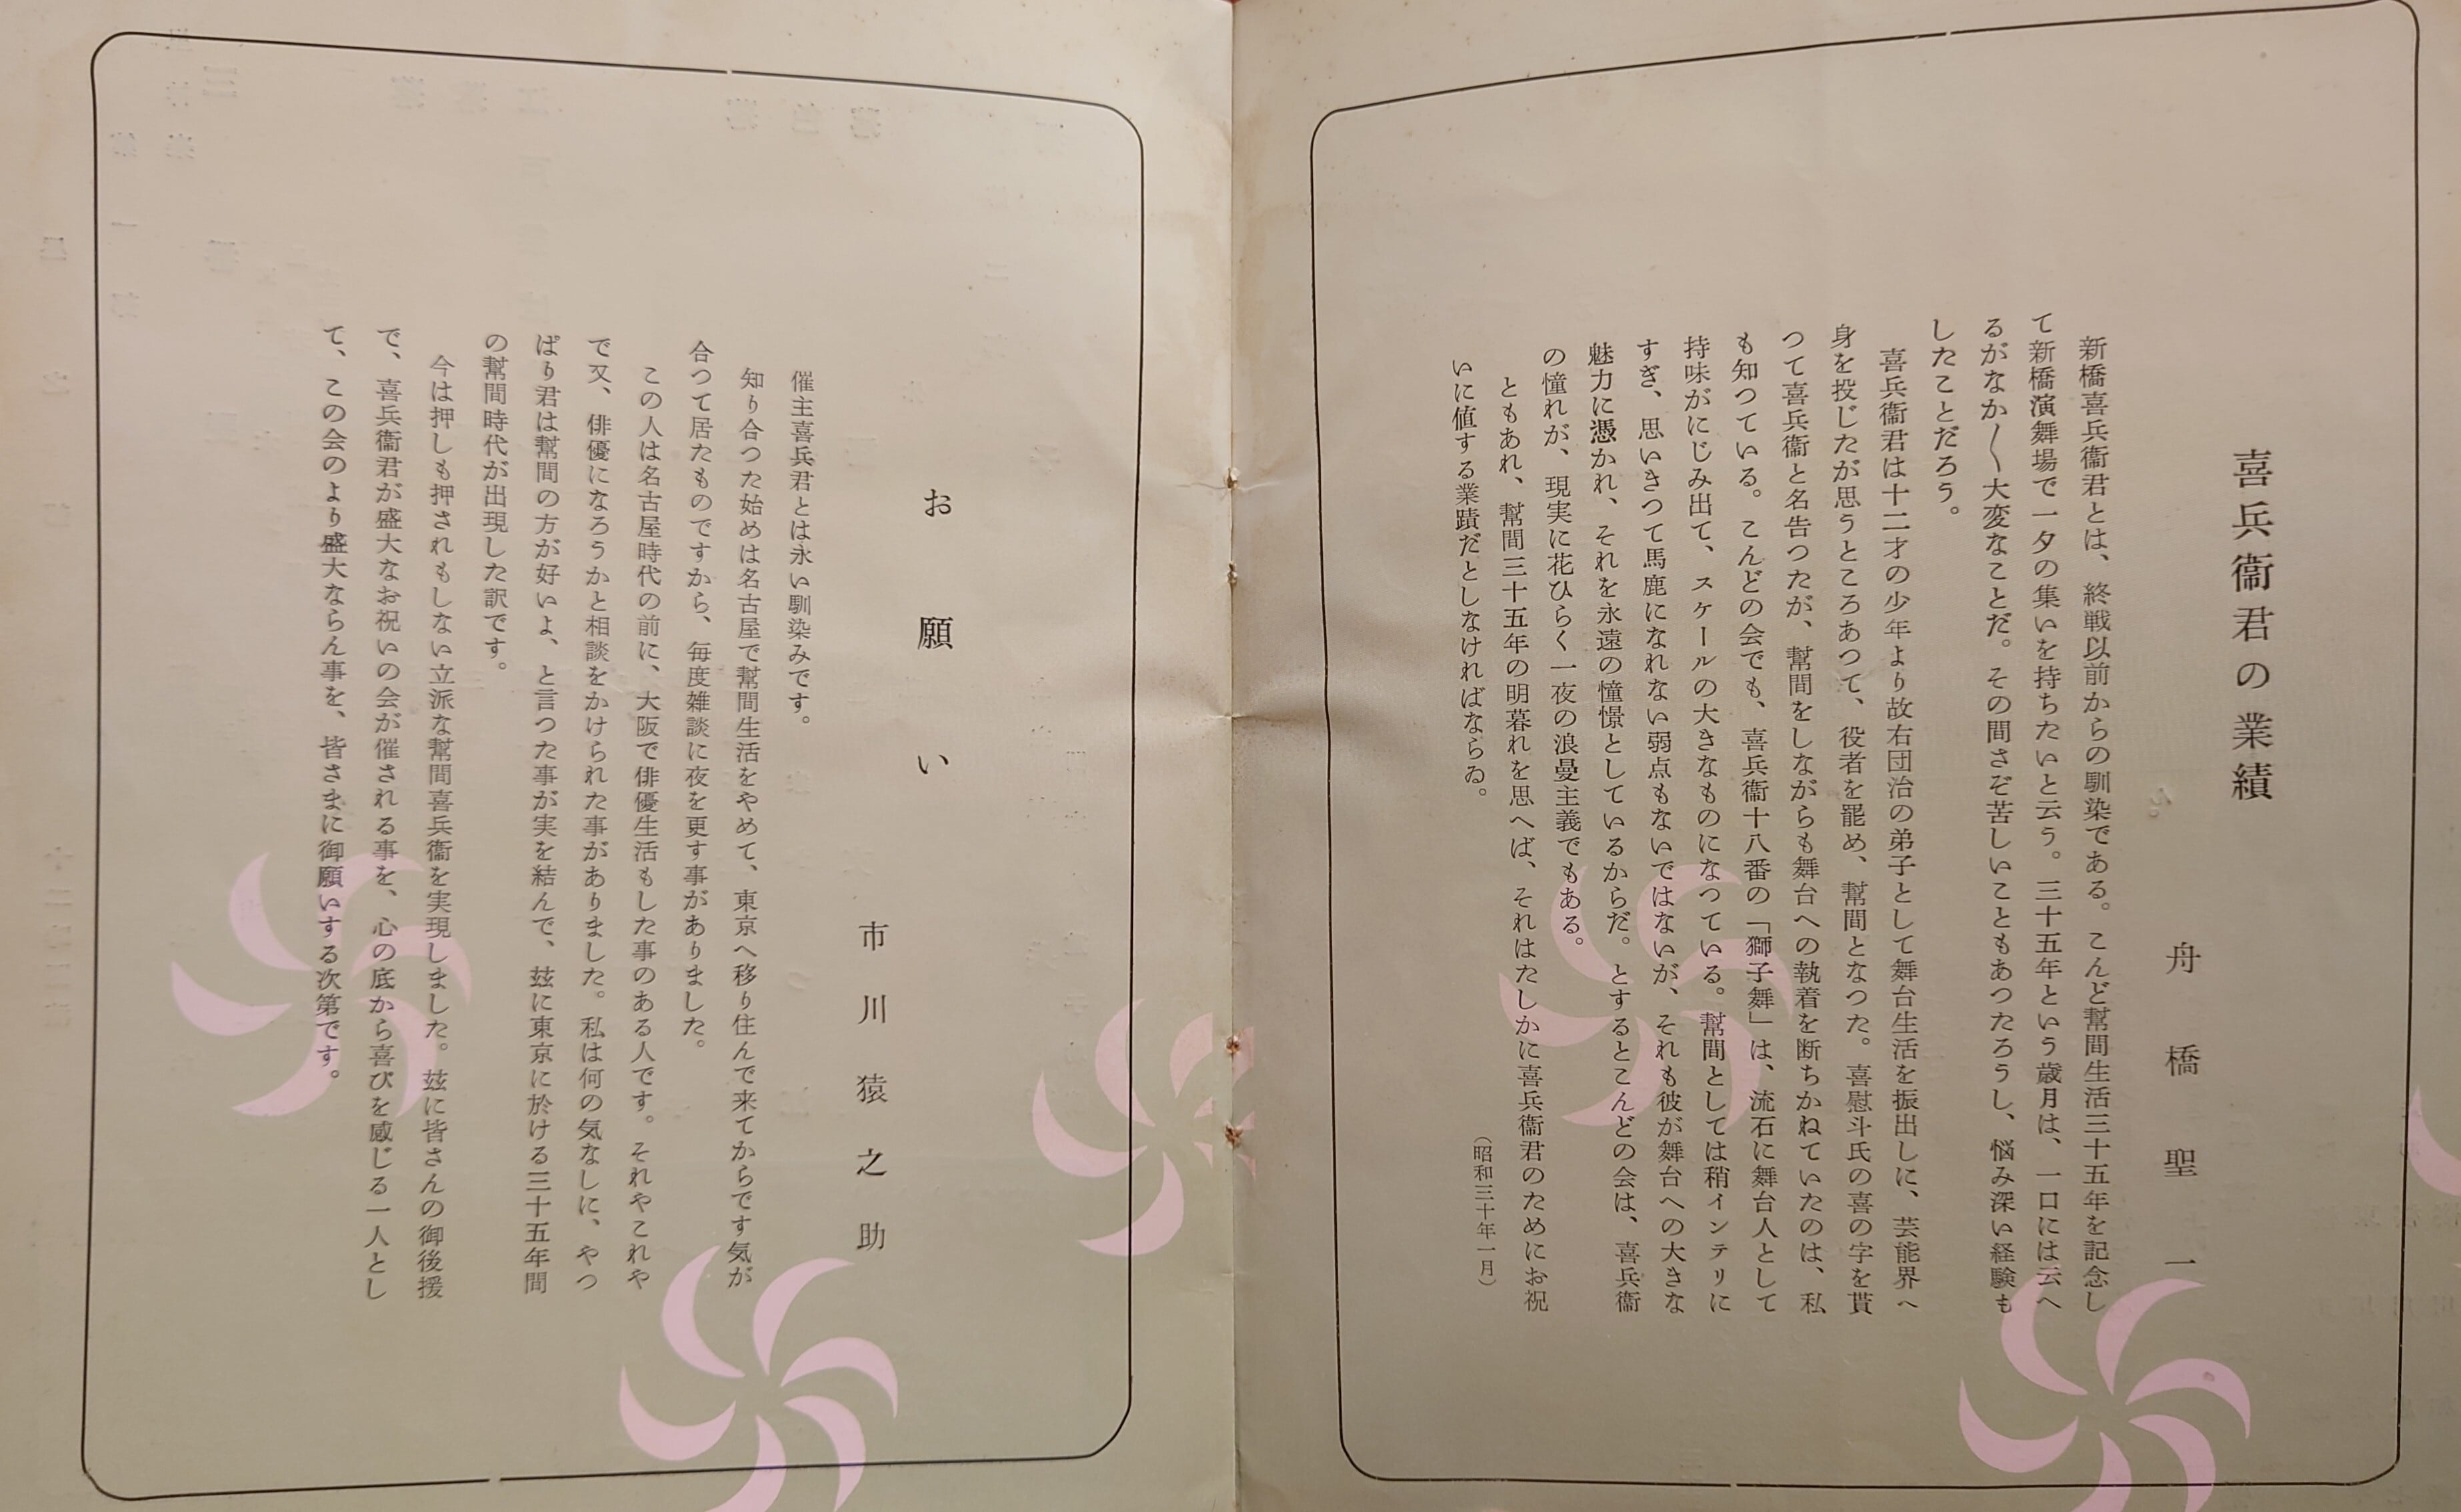 喜兵衞君の業績
舟橋聖一
新橋喜兵衞君とは、終戦以前からの馴染である。こんど幇間生活三十五年を記念し
て新橋演舞場で一夕の集いを持ちたいと云う。三十五年という歳月は、一口には云へ
るがなか〳〵大変なことだ。その間さぞ苦しいこともあつたろうし、悩み深い経験も
したことだろう。
喜兵衞君は十二才の少年より故右団治の弟子として舞台生活を振出しに、芸能界へ
身を投じたが思うところあつて、役者を罷め、幇間となつた。喜慰斗氏の喜の字を貰
つて喜兵衞と名告つたが、幇間をしながらも舞台への執着を断ちかねていたのは、私
も知つている。こんどの会でも、喜兵衞十八番の「獅子舞」は、流石に舞台人として
持味がにじみ出て、スケールの大きなものになつている。幇間としては稍インテリに
すぎ、思いきつて馬鹿になれない弱点もないではないが、それも彼が舞台への大きな
魅力に憑かれ、それを永遠の憧憬としているからだ。とするとこんどの会は、喜兵衞
の憧れが、現実に花ひらく一夜の浪曼主義でもある。
ともあれ、幇間三十五年の明暮れを思へば、それはたしかに喜兵衞君のためにお祝
いに値する業蹟だとしなければならゐ。
（昭和三十年一月）
お願い
市川猿之助
催主喜兵君とは永い馴染みです。
知り合つた始めは名古屋で幇間生活をやめて、東京へ移り住んで来てからです気が
合つて居たものですから、毎度雑談に夜を更す事がありました。
この人は名古屋時代の前に、大阪で俳優生活もした事のある人です。それやこれや
で又、俳優になろうかと相談をかけられた事がありました。私は何の気なしに、やつ
ぱり君は幇間の方が好いよ、と言つた事が実を結んで、玆に東京に於ける三十五年間
の幇間時代が出現した訳です。
今は押しも押されもしない立派な幇間喜兵衞を実現しました。玆に皆さんの御後援
で、喜兵衞君が盛大なお祝いの会が催される事を、心の底から喜びを感じる一人とし
て、この会のより盛大ならん事を、皆さまに御願いする次第です。